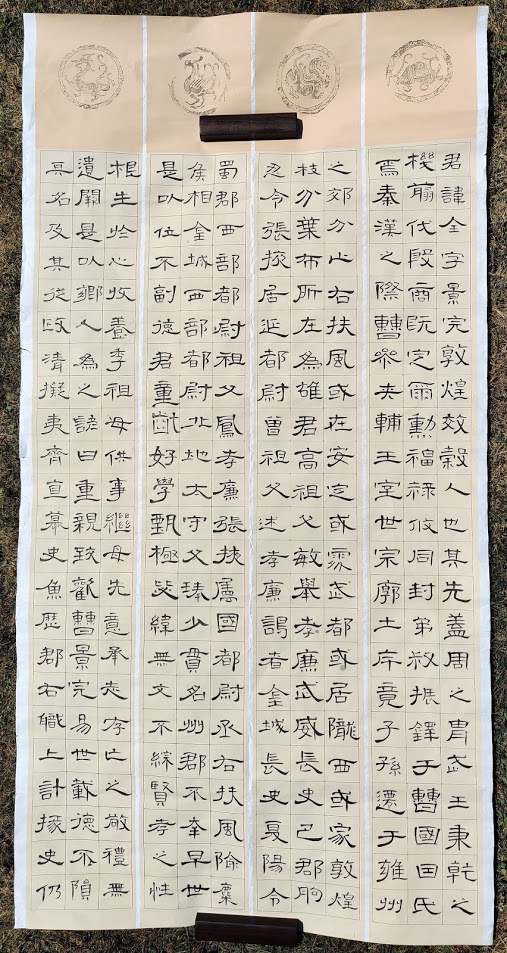 君諱全字景完敦煌效穀人也其先蓋周之胄武王秉乾之
機翦伐殷商既定爾勳福祿攸同封弟叔振鐸于曹國因氏
焉秦漢之際曹參夾輔王室世宗廓土斥竟子孫遷于雍州
之郊分止右扶風或在安定或處武都或居隴西或家敦煌
枝分葉布所在為雄君高祖父敏舉孝廉武威長史巴郡朐
忍令張掖居延都尉曾祖父述孝廉謁者金城長史夏陽令
蜀郡西部都尉祖父鳳孝廉張掖屬國都尉丞右扶風隃麋
侯相金城西部都尉北地太守父琫少貫名州郡不幸早世
是以位不副德君童齔好學甄極毖緯無文不綜賢孝之性
根生於心收養季祖母供事繼母先意承志存亡之敬禮無
遺闕是以鄉人為之諺曰重親致歡曹景完易世載德不隕
其名及其從政清擬夷齊直慕史魚歷郡右職上計掾史仍